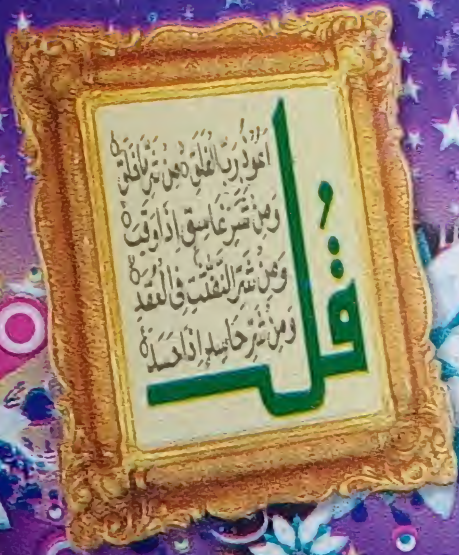 قُلْ
اَعُوْذُ بِرَبِّ الْفَلَقِ ۙ مِنْ شَرِّ مَا خَلَقَ ۙ
وَمِنْ شَرِّ غَاسِقٍ اِذَا وَقَبَ ۙ
وَمِنْ شَرِّ النَّفّٰثٰتِ فِي الْعُقَدِ ۙ
وَمِنْ شَرِّ حَاسِدٍ اِذَا حَسَدَ ۠